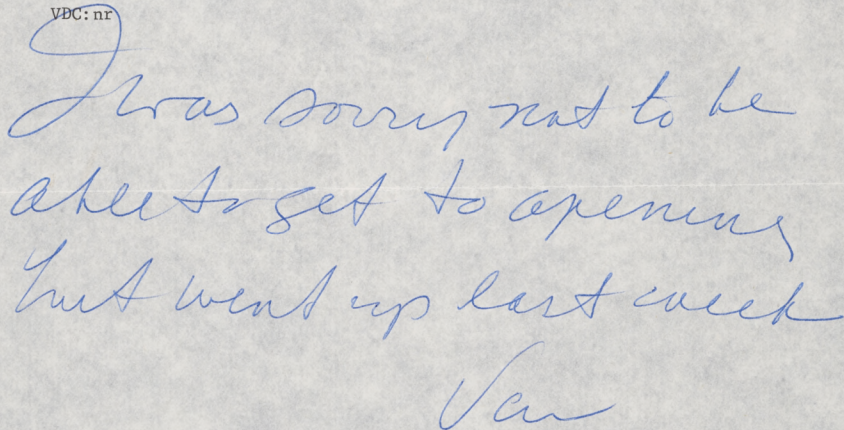 VDC:nr
I was sorry not to be
able to get to opening
but went up last week
Van